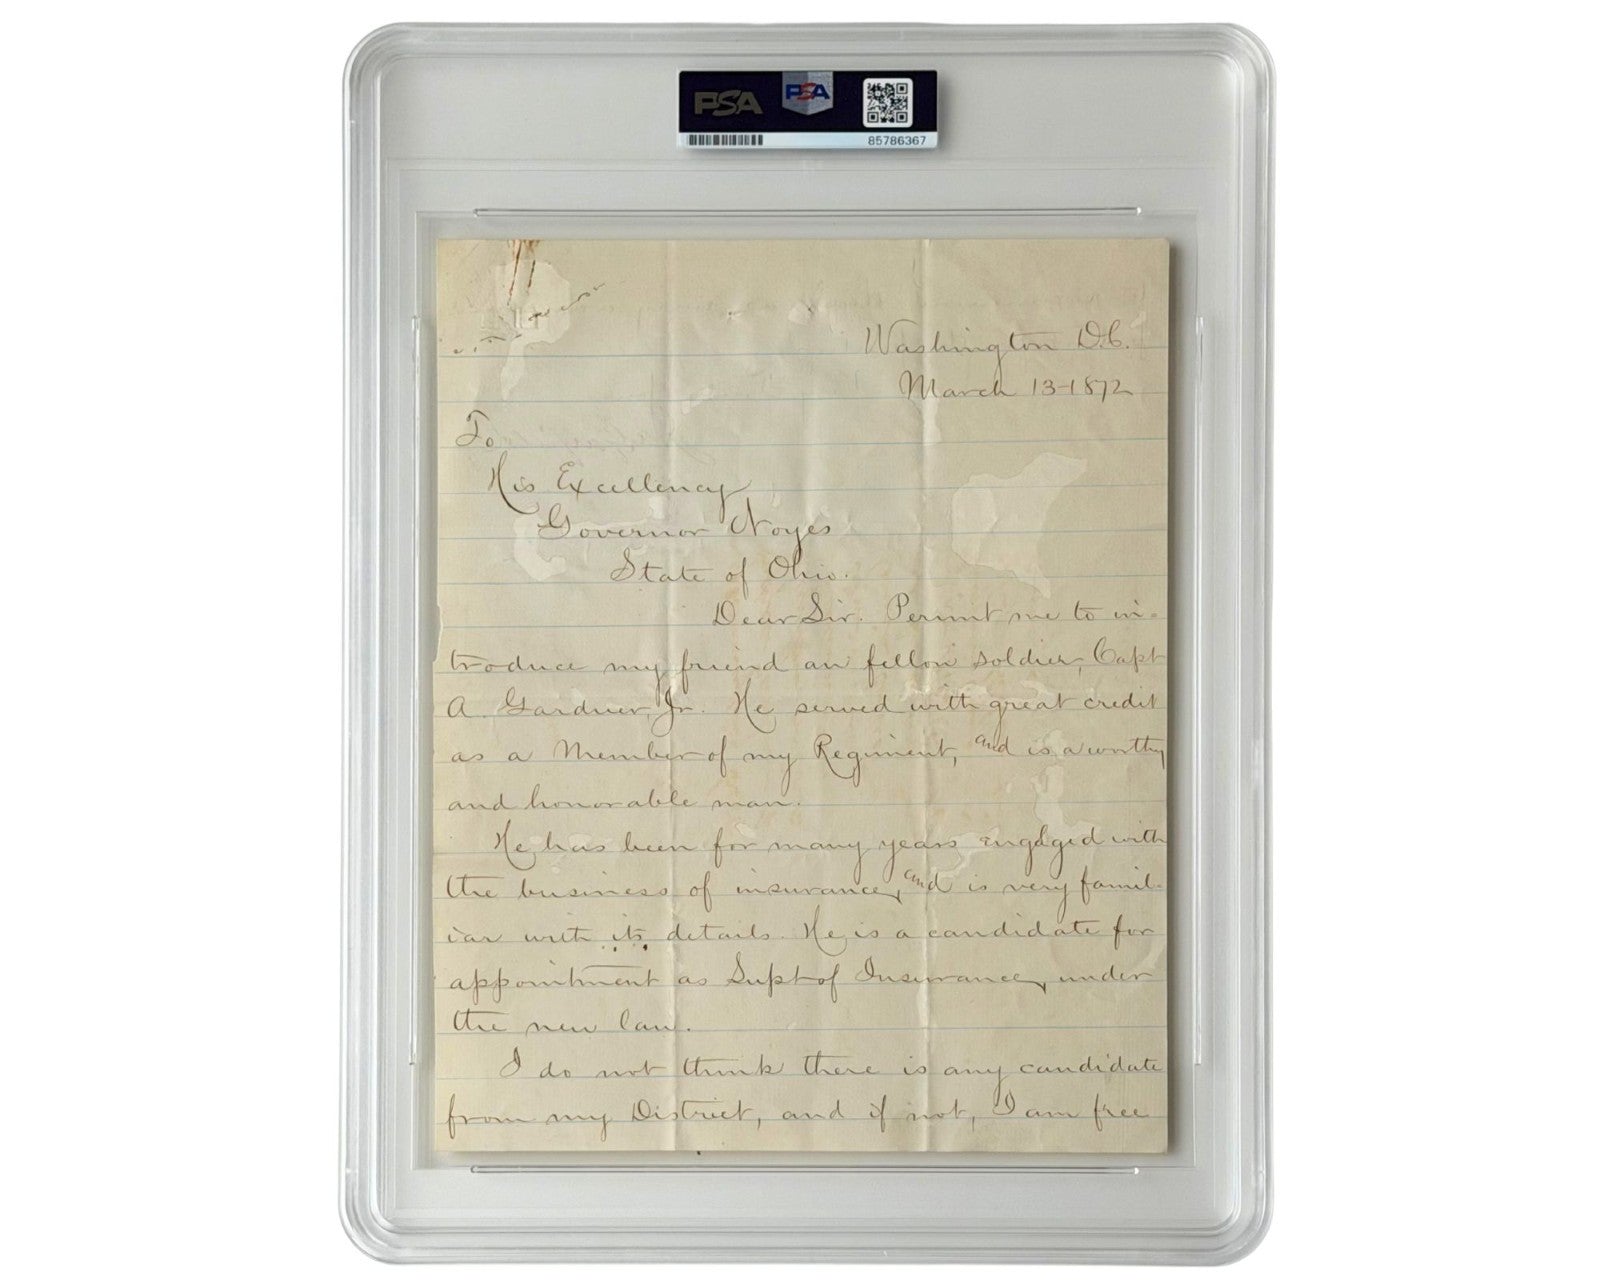 PSA
PSA
85786367
Washington D.C.
March 13-1872
To
His Excellency
Governor Noyes
State of Ohio.
Dear Sir. Permit me to in-
troduce my friend an fellow soldier, Capt
A. Gardner, Jr. He served with great credit
as a Member of my Regiment, and is a worthy
and honorable man.
He has been for many years engaged with
the business of insurance, and is very famil-
iar with its details. He is a candidate for
appointment as Supt of Insurance, under
the new law.
I do not think there is any candidate
from my District, and if not, I am free